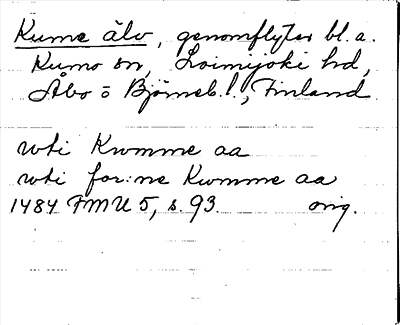 Kumo älv, genomflyter bl.a.
Kumo sn, Loimijoki hd,
Åbo o Björneb. l., Finland
wti Kwmme aa
wti for:ne Kwmme aa
1484 FMU 5, s. 93. orig.